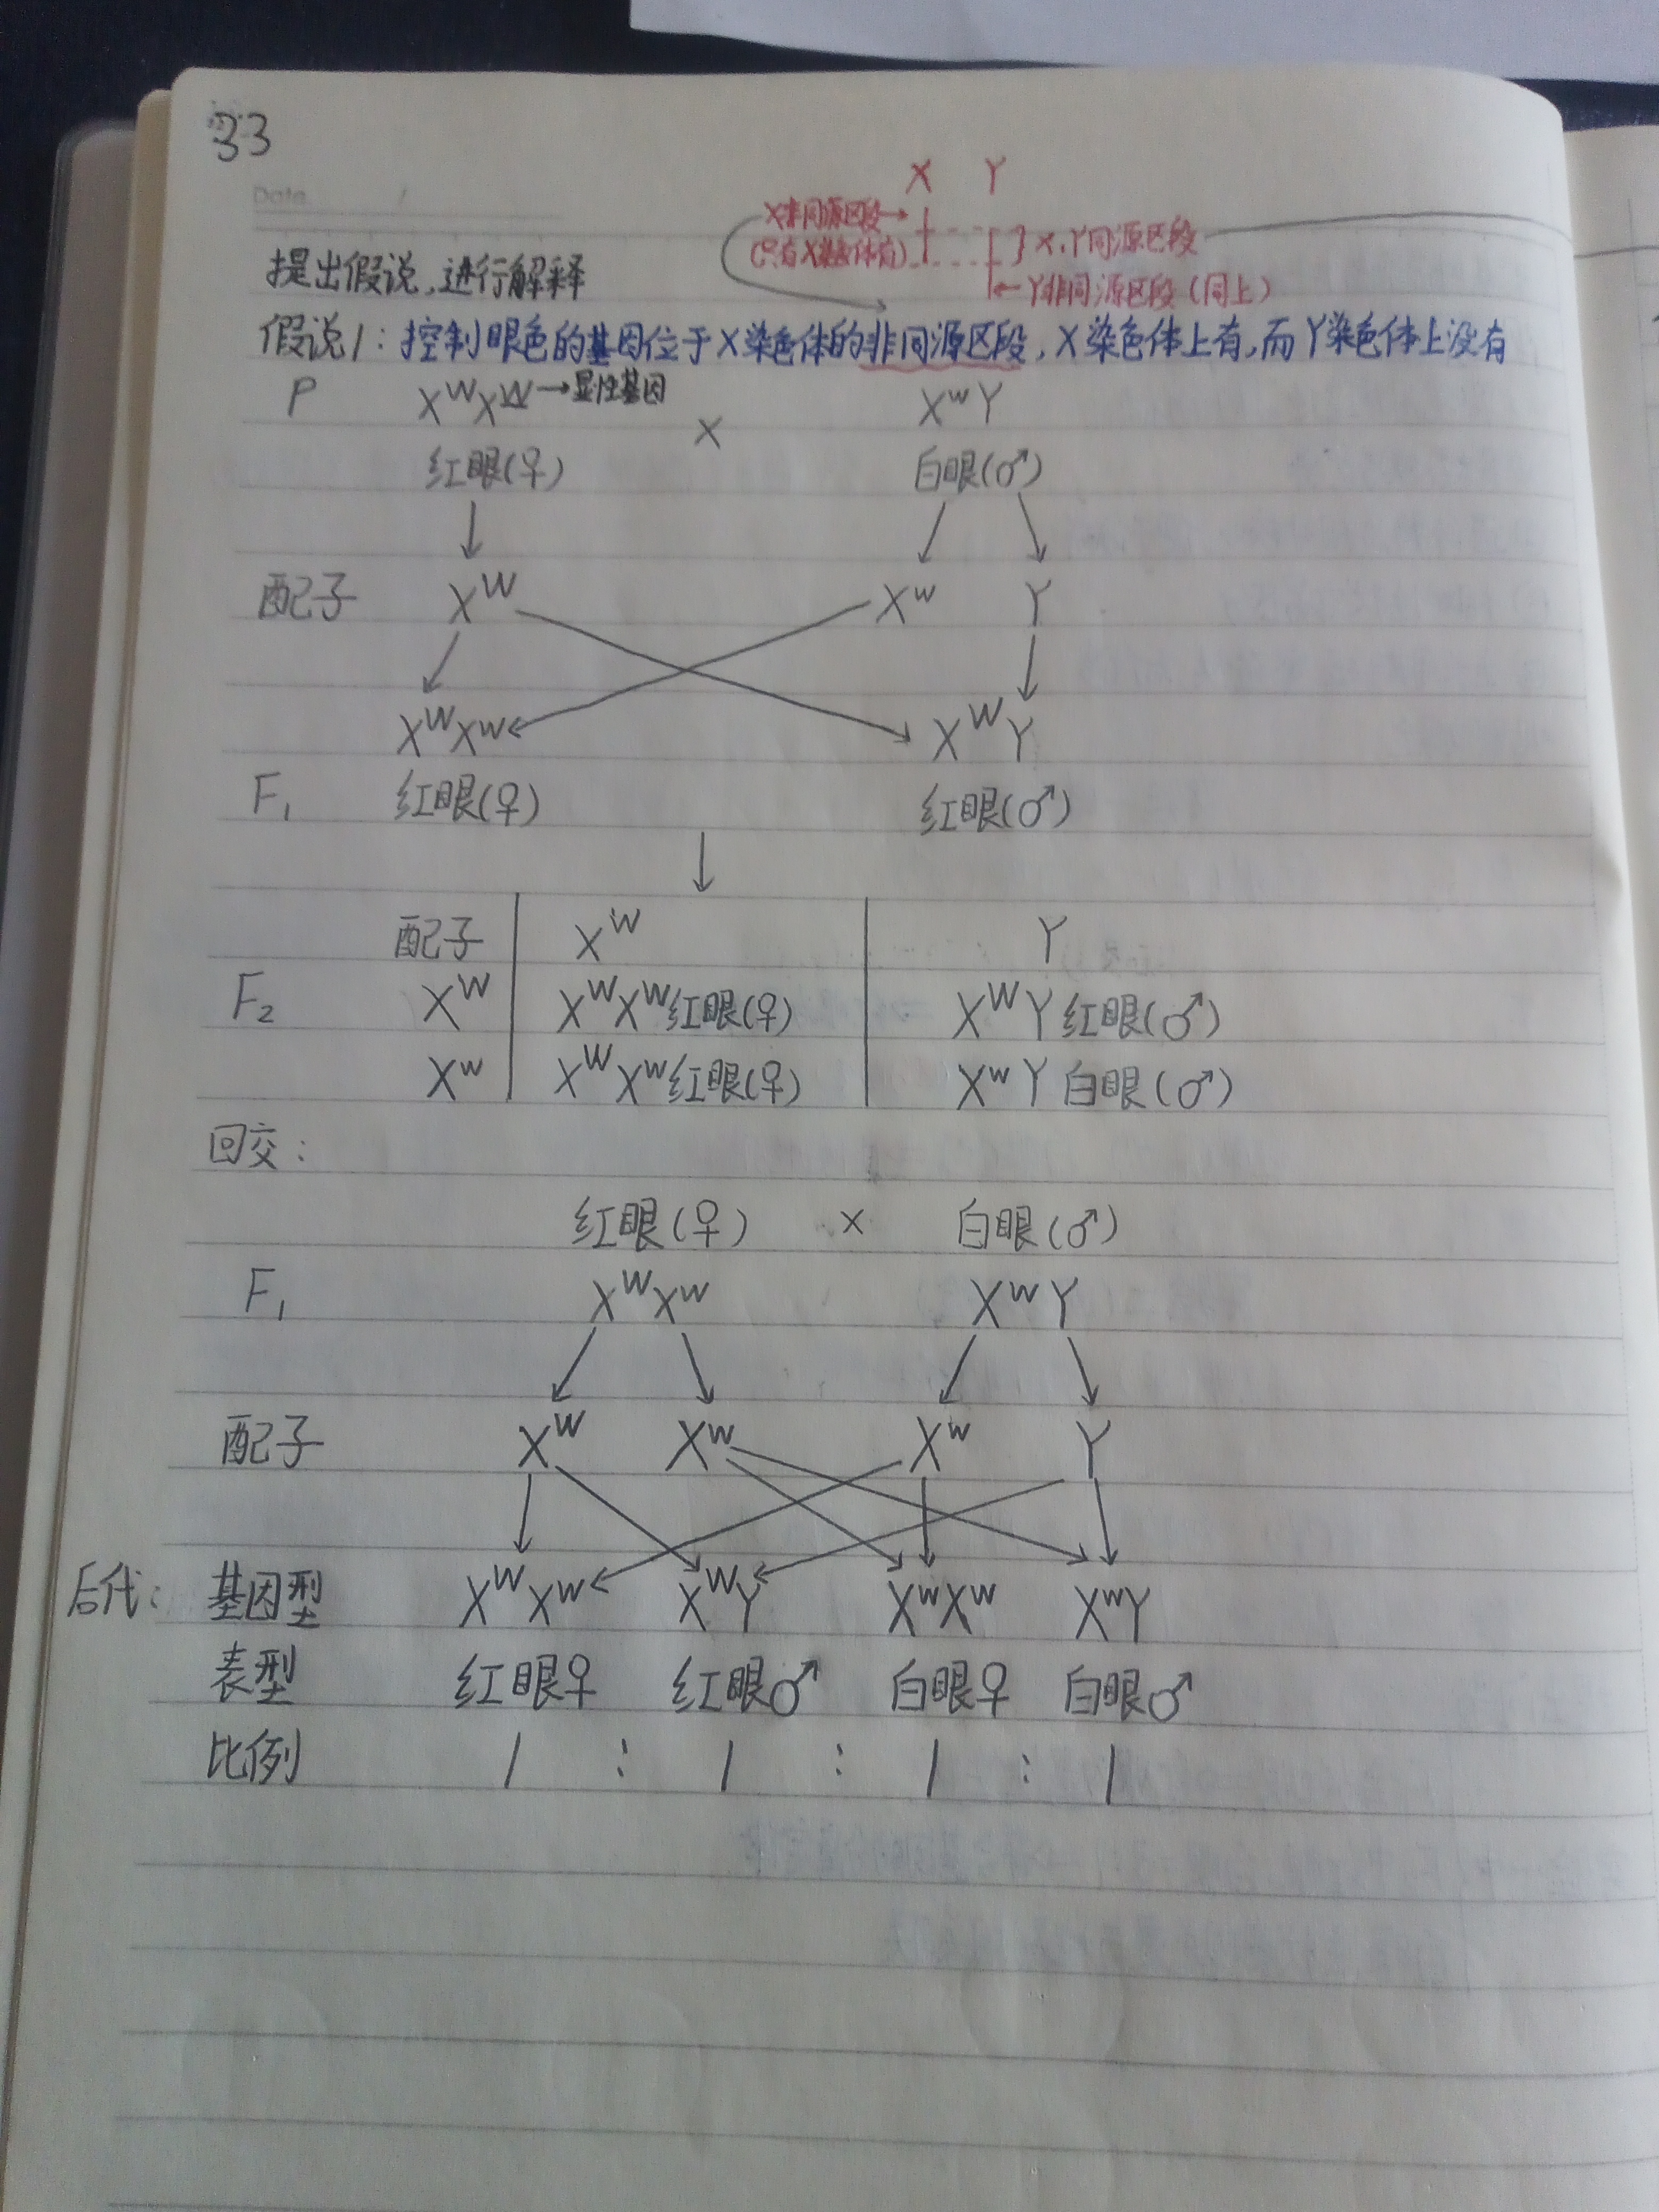 33
Date /
X Y
X非同源区段→
(只有X染色体有)
X、Y同源区段
←Y非同源区段(同上)
提出假说,进行解释
假说1:控制眼色的基因位于X染色体的非同源区段,X染色体上有,而Y染色体上没有
P XᵂXᵂ→显性基因 × XʷY
红眼(♀) 白眼(♂)
配子 Xᵂ Xʷ Y
XᵂXʷ XᵂY
F₁ 红眼(♀) 红眼(♂)
配子 Xᵂ Y
F₂ Xᵂ XᵂXᵂ红眼(♀) XᵂY红眼(♂)
Xʷ XᵂXʷ红眼(♀) XʷY白眼(♂)
回交:
红眼(♀) × 白眼(♂)
F₁ XᵂXʷ XʷY
配子 Xᵂ Xʷ Xʷ Y
后代: 基因型 XᵂXʷ XᵂY XʷXʷ XʷY
表型 红眼♀ 红眼♂ 白眼♀ 白眼♂
比例 1 : 1 : 1 : 1